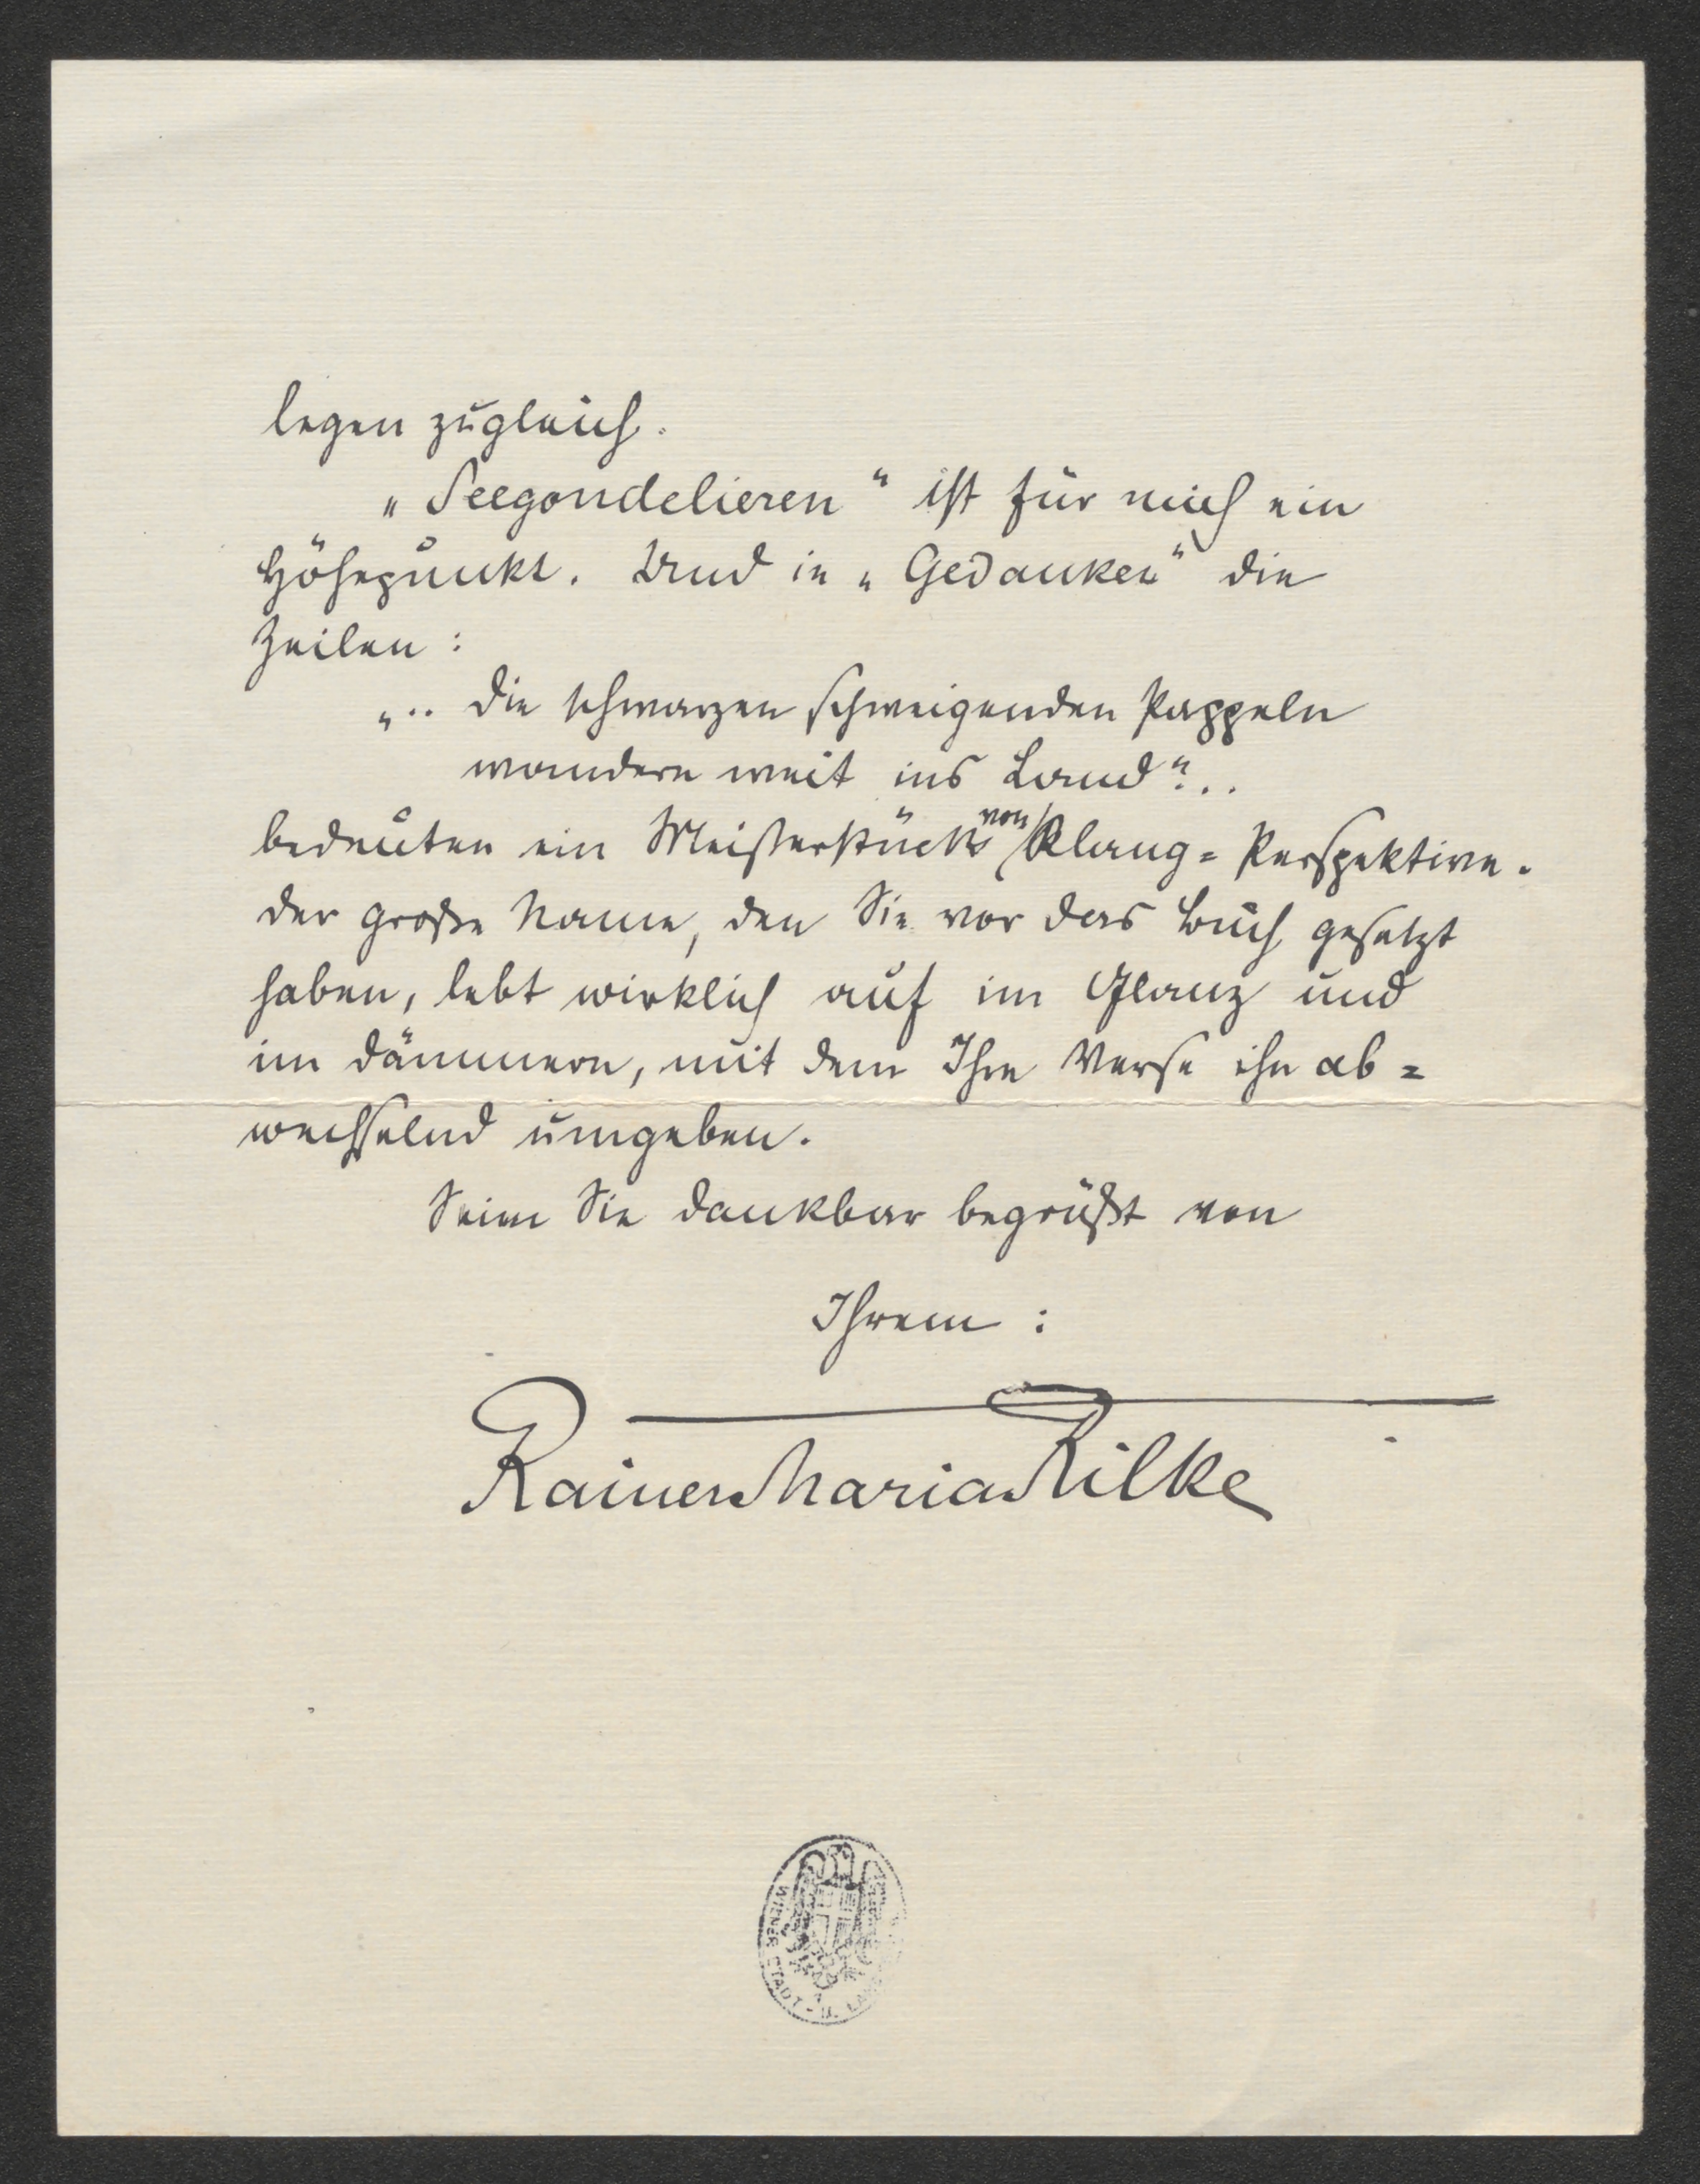 legen zugleich.
„Seegondelieren“ ist für mich ein
Höhepunkt. Und in „Gedanken“ die
Zeilen:
„.. die schwarzen schweigenden Pappeln
wandern weit ins Land“..
bedeuten ein Meisterstück von Klang=Perspektive.
der große Name, den Sie vor das Buch gesetzt
haben, lebt wirklich auf im Glanz und
im dämmern, mit dem Ihre Verse ihn ab=
wechselnd umgeben.
Seien Sie dankbar begrüßt von
Ihrem:
Rainer Maria Rilke
STADT - U.